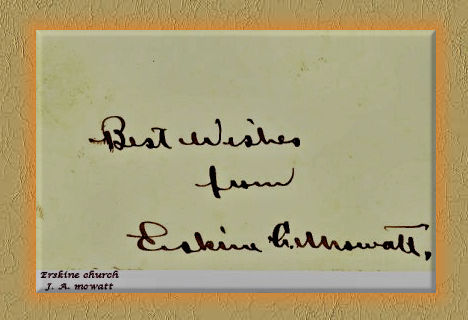 Best Wishes
from
Erskine C. Mowatt,
Erskine church
J. A. mowatt